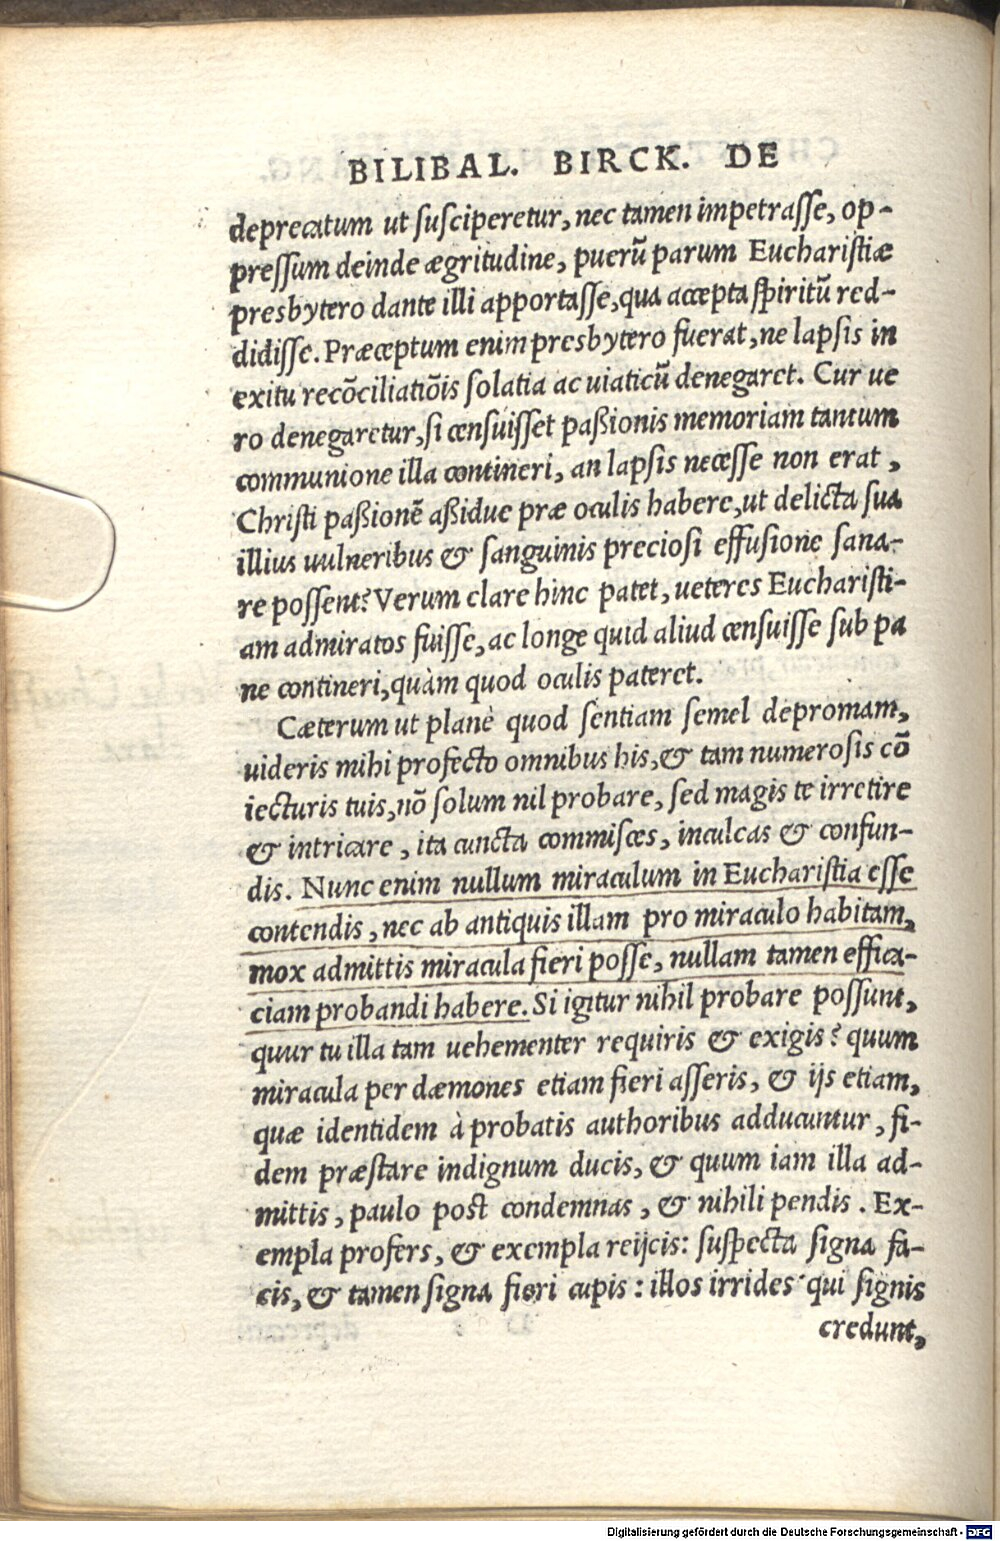 BILIBAL. BIRCK. DE
deprecatum ut susciperetur, nec tamen impetrasse, op-
pressum deinde ægritudine, puerũ parum Eucharistiæ
presbytero dante illi apportasse, qua accepta spiritũ red-
didisse. Præceptum enim presbytero fuerat, ne lapsis in
exitu recõciliatiõis solatia ac uiaticũ denegaret. Cur ue
ro denegaretur, si censuisset paßionis memoriam tantum
communione illa contineri, an lapsis necesse non erat,
Christi paßionẽ aßidue præ oculis habere, ut delicta sua
illius uulneribus & sanguinis preciosi effusione sana-
re possent? Verum clare hinc patet, ueteres Eucharisti-
am admiratos fuisse, ac longe quid aliud censuisse sub pa
ne contineri, quàm quod oculis pateret.
Cæterum ut planè quod sentiam semel depromam,
uideris mihi profecto omnibus his, & tam numerosis cõ
iecturis tuis, nõ solum nil probare, sed magis te irretire
& intricare, ita cuncta commisces, inculcas & confun-
dis. Nunc enim nullum miraculum in Eucharistia esse
contendis, nec ab antiquis illam pro miraculo habitam,
mox admittis miracula fieri posse, nullam tamen effica-
ciam probandi habere. Si igitur nihil probare possunt,
quur tu illa tam uehementer requiris & exigis? quum
miracula per dæmones etiam fieri asseris, & ijs etiam,
quæ identidem à probatis authoribus adducuntur, fi-
dem præstare indignum ducis, & quum iam illa ad-
mittis, paulo post condemnas, & nihili pendis. Ex-
empla profers, & exempla reijcis: suspecta signa fa-
cis, & tamen signa fieri cupis: illos irrides qui signis
credunt,
Digitalisierung gefördert durch die Deutsche Forschungsgemeinschaft - DFG